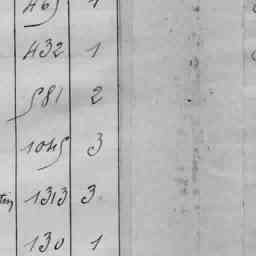 465 1
432 1
581 2
1045 3
1313 3
130 1